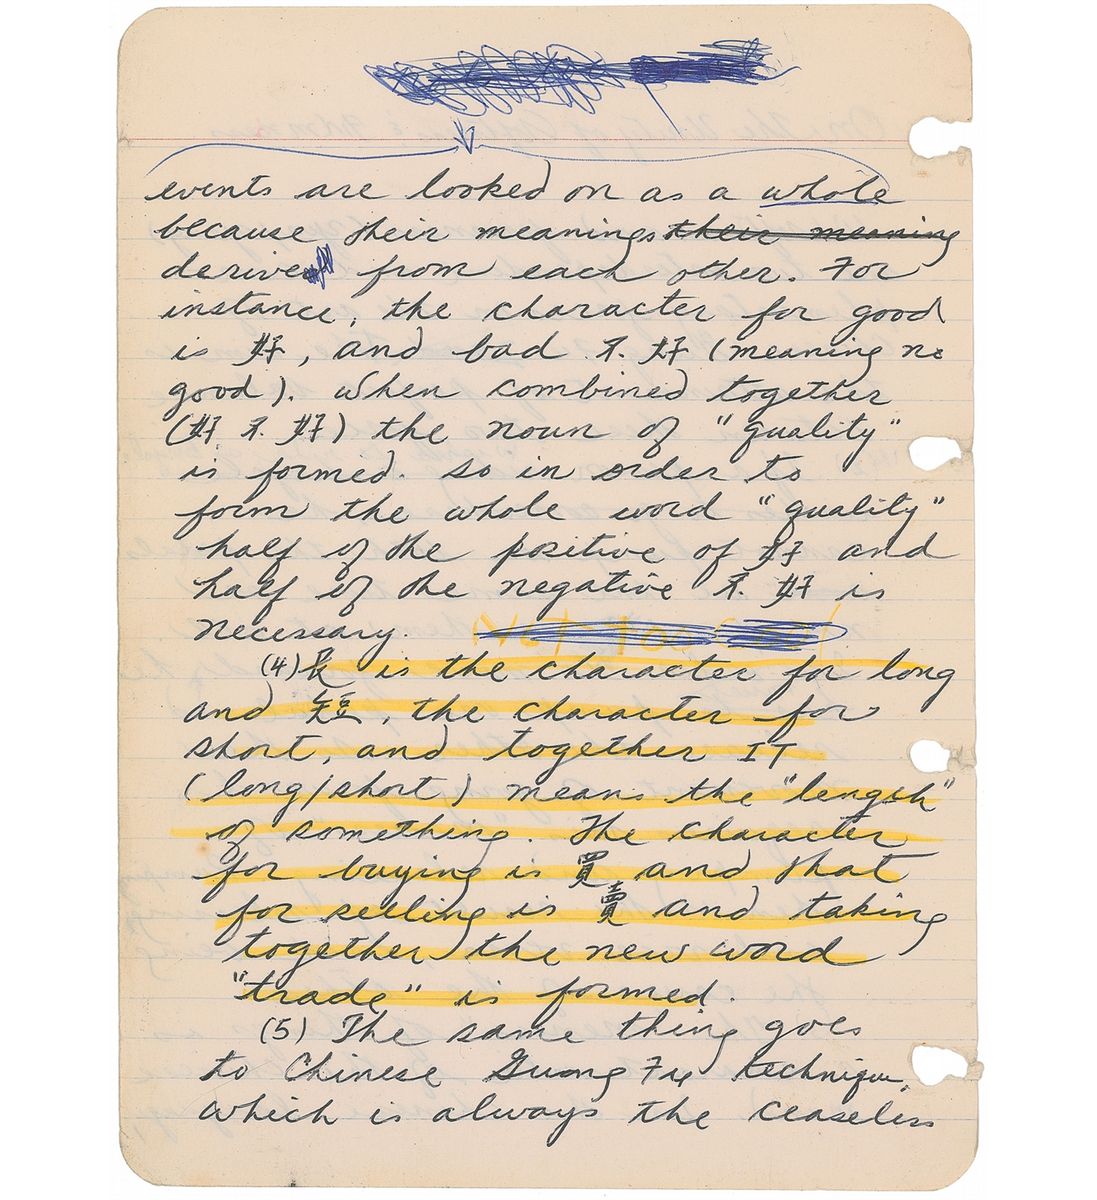 events are looked on as a whole
because their meanings their meaning
derive from each other. For
instance, the character for good
is 好, and bad 不好 (meaning no
good). When combined together
(好不好) the noun of "quality"
is formed. so in order to
form the whole word "quality"
half of the positive of 好 and
half of the negative 不好 is
necessary.
(4) 長 is the character for long
and 短, the character for
short, and together IT
(long/short) means the "length"
of something. The character
for buying is 買 and that
for selling is 賣 and taking
together the new word
"trade" is formed.
(5) The same thing goes
to Chinese Gung Fu technique,
which is always the ceaseless